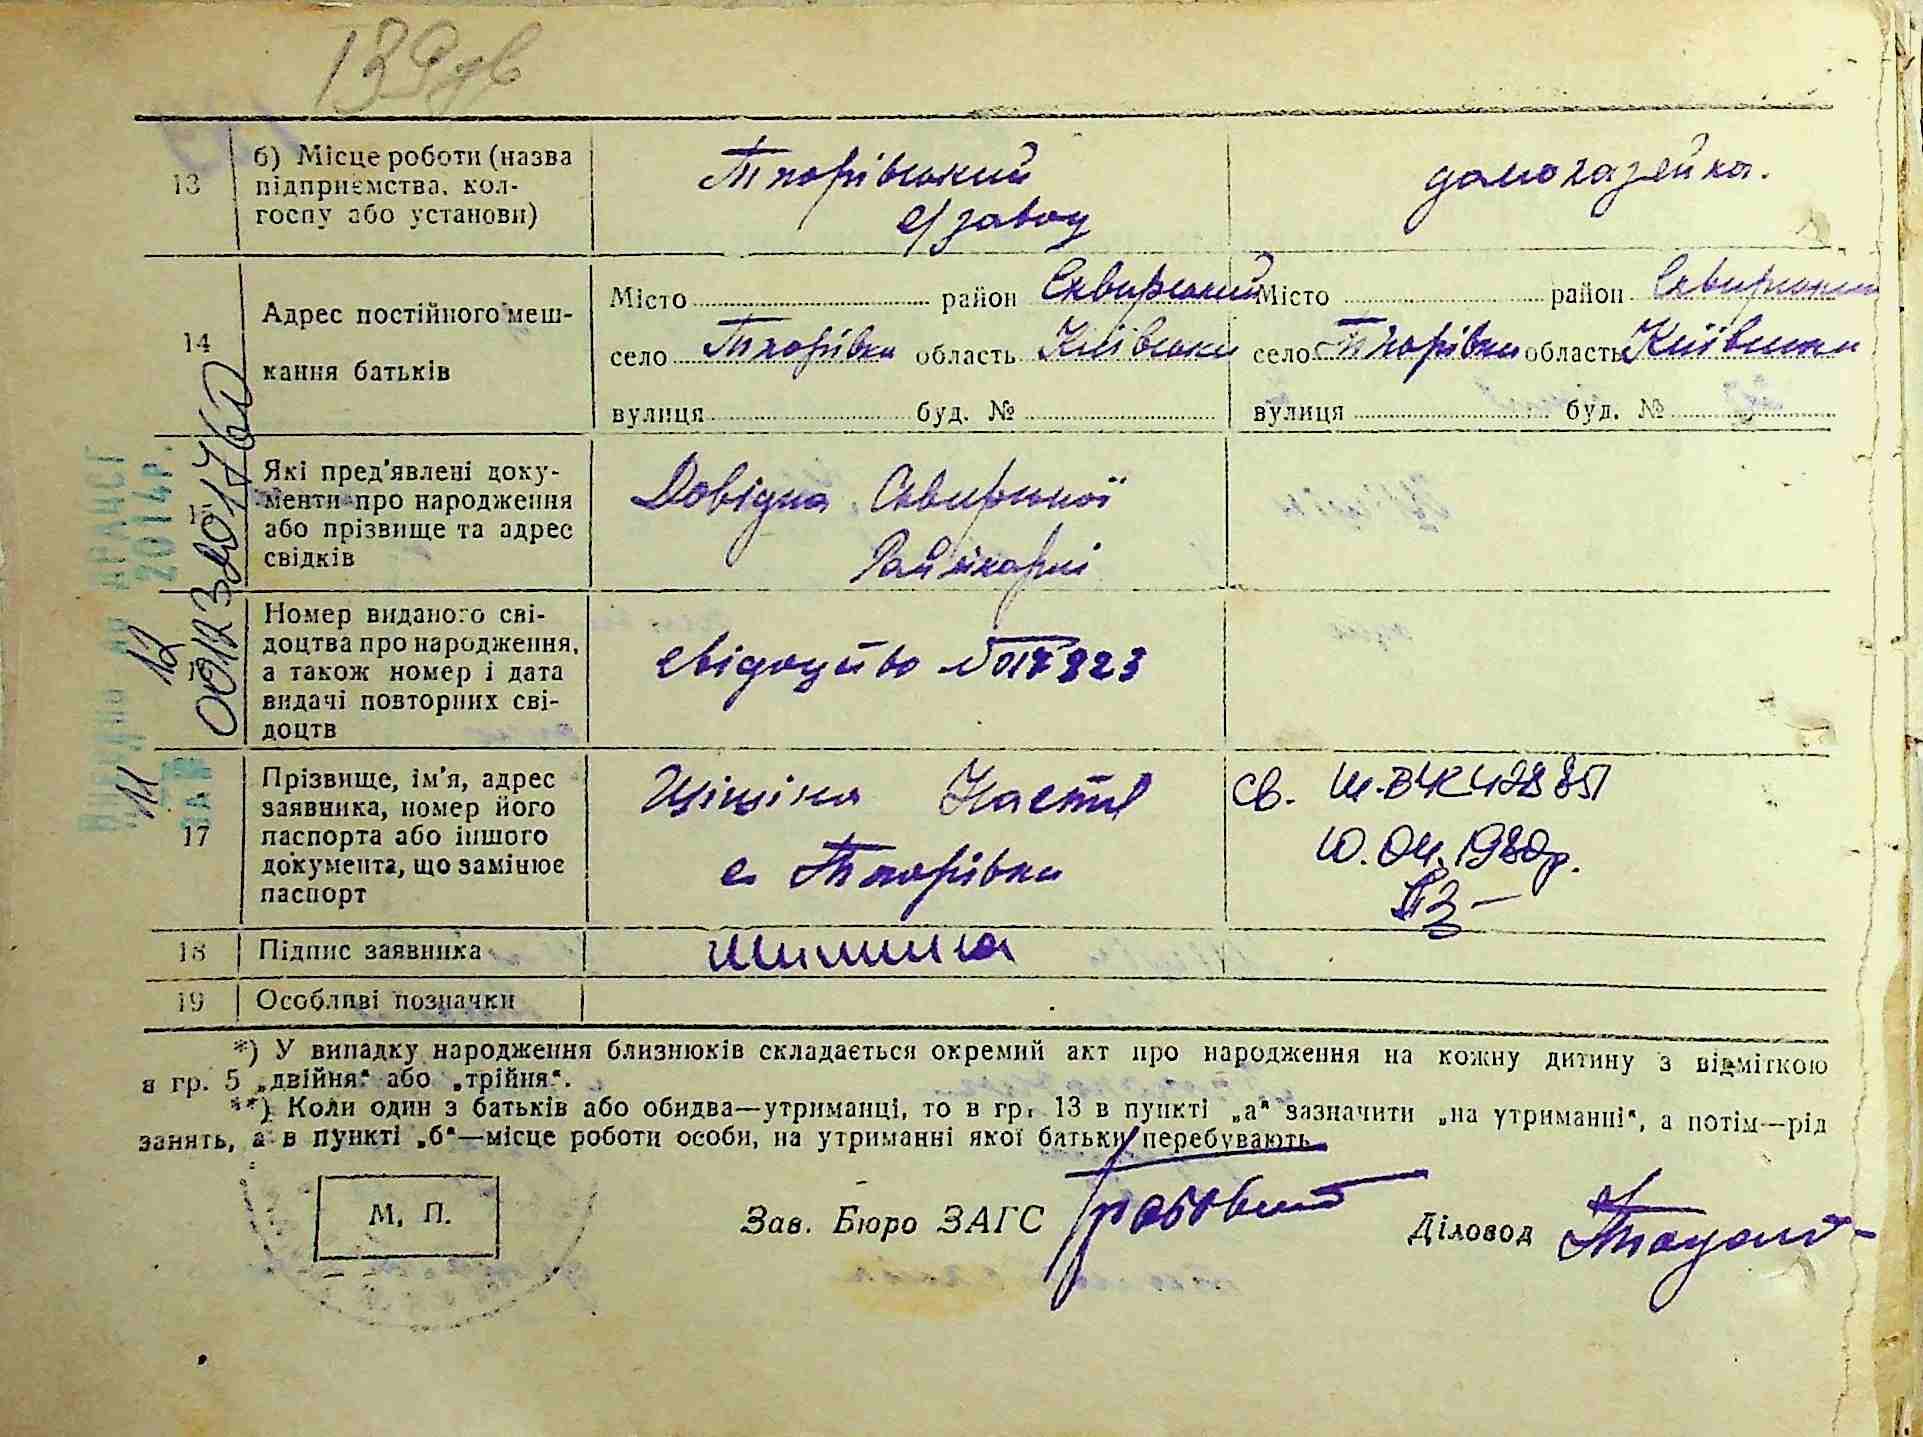 139зв
13
б) Місце роботи (назва
підприємства, кол-
госпу або установи)
Тхорівський
с/завод
домогазяйка.
14
Адрес постійного меш-
кання батьків
Місто район Сквирський
село Тхорівка область Київська
вулиця буд. №
Місто район Сквирський
село Тхорівка область Київська
вулиця буд. №
Які пред'явлені доку-
менти про народження
або прізвище та адрес
свідків
Довідка Сквирської
Номер виданого сві-
доцтва про народження,
а також номер і дата
видачі повторних сві-
доцтв
свідоцтво №
17
Прізвище, ім'я, адрес
заявника, номер його
паспорта або іншого
документа, що замінює
паспорт
Настя
с. Тхорівка
св.
10.04.1980р.
18
Підпис заявника
19
Особливі позначки
*) У випадку народження близнюків складається окремий акт про народження на кожну дитину з відміткою
в гр. 5 „двійня“ або „трійня“.
**) Коли один з батьків або обидва—утриманці, то в гр. 13 в пункті „а“ зазначити „на утриманні“, а потім—рід
занять, а в пункті „б“—місце роботи особи, на утриманні якої батьки перебувають
М. П.
Зав. Бюро ЗАГС
Діловод
2014р.